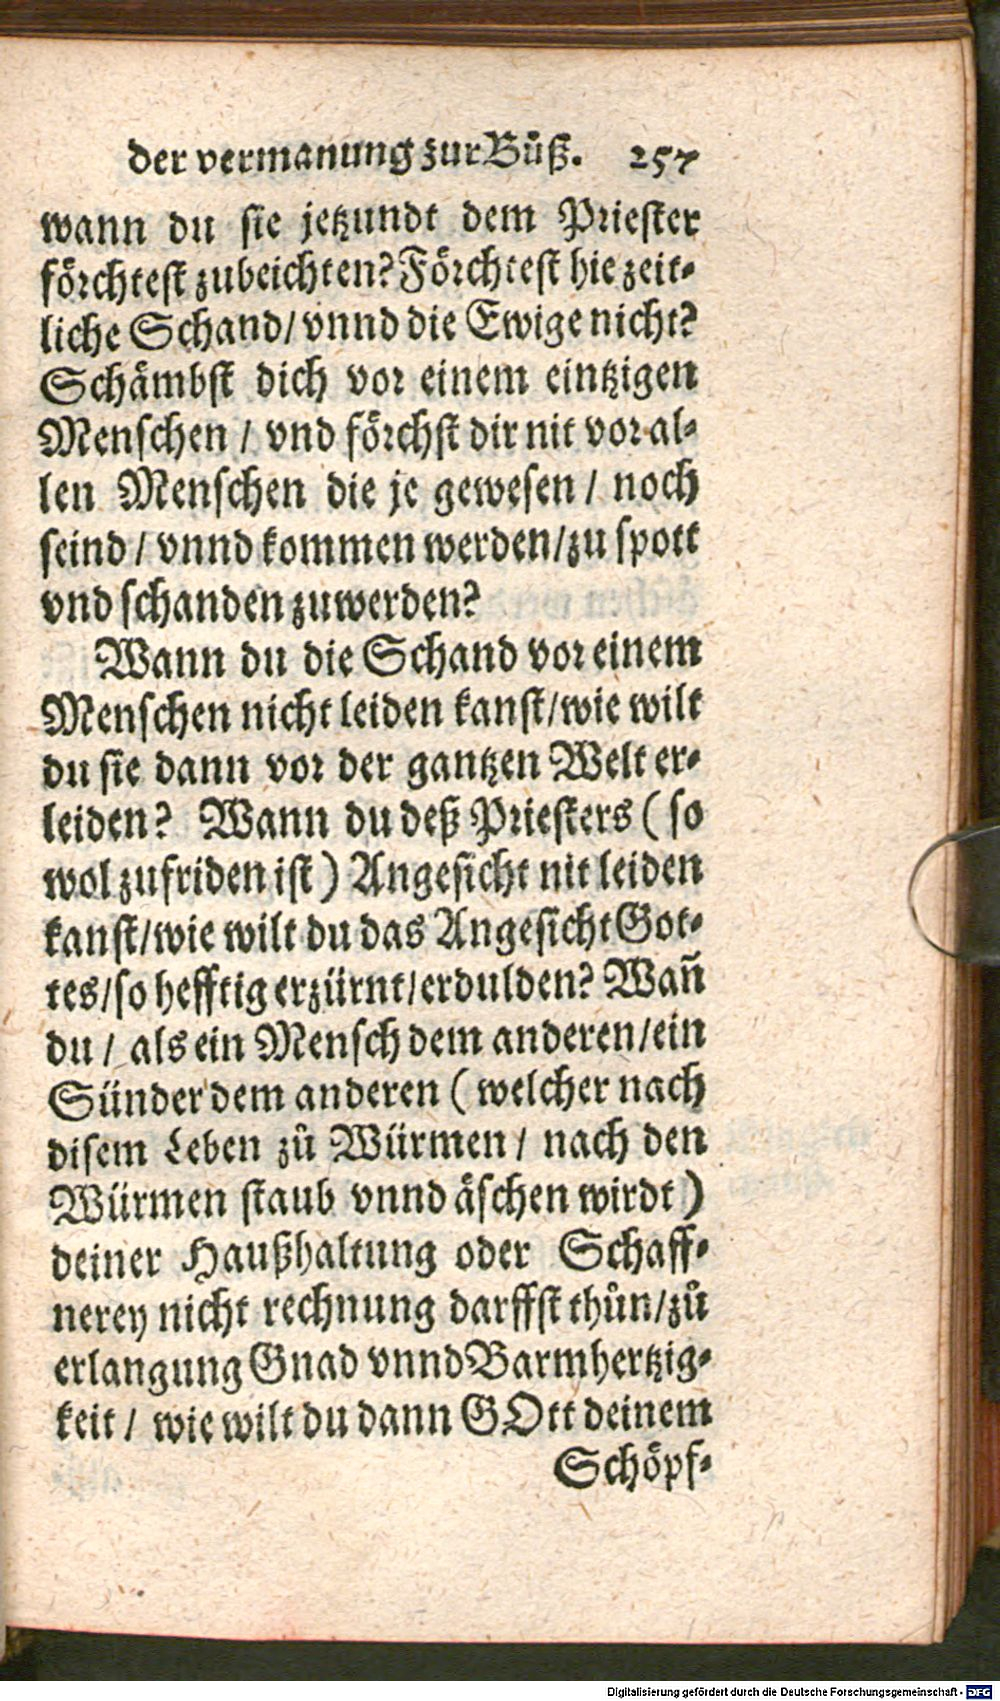 der vermanung zur Bůß. 257
wann du sie jetzundt dem Priester
förchtest zubeichten? Förchtest hie zeit-
liche Schand/ vnnd die Ewige nicht?
Schämbst dich vor einem eintzigen
Menschen / vnd förchst dir nit vor al-
len Menschen die je gewesen / noch
seind / vnnd kommen werden/ zu spott
vnd schanden zuwerden?
Wann du die Schand vor einem
Menschen nicht leiden kanst/ wie wilt
du sie dann vor der gantzen Welt er-
leiden? Wann du deß Priesters ( so
wol zufriden ist ) Angesicht nit leiden
kanst/ wie wilt du das Angesicht Got-
tes/ so hefftig erzürnt/ erdulden? Wañ
du / als ein Mensch dem anderen/ ein
Sünder dem anderen ( welcher nach
disem Leben zů Würmen / nach den
Würmen staub vnnd äschen wirdt )
deiner Haußhaltung oder Schaff-
nerey nicht rechnung darffst thůn/ zů
erlangung Gnad vnnd Barmhertzig-
keit / wie wilt du dann GOtt deinem
Schöpf-
Digitalisierung gefördert durch die Deutsche Forschungsgemeinschaft - DFG